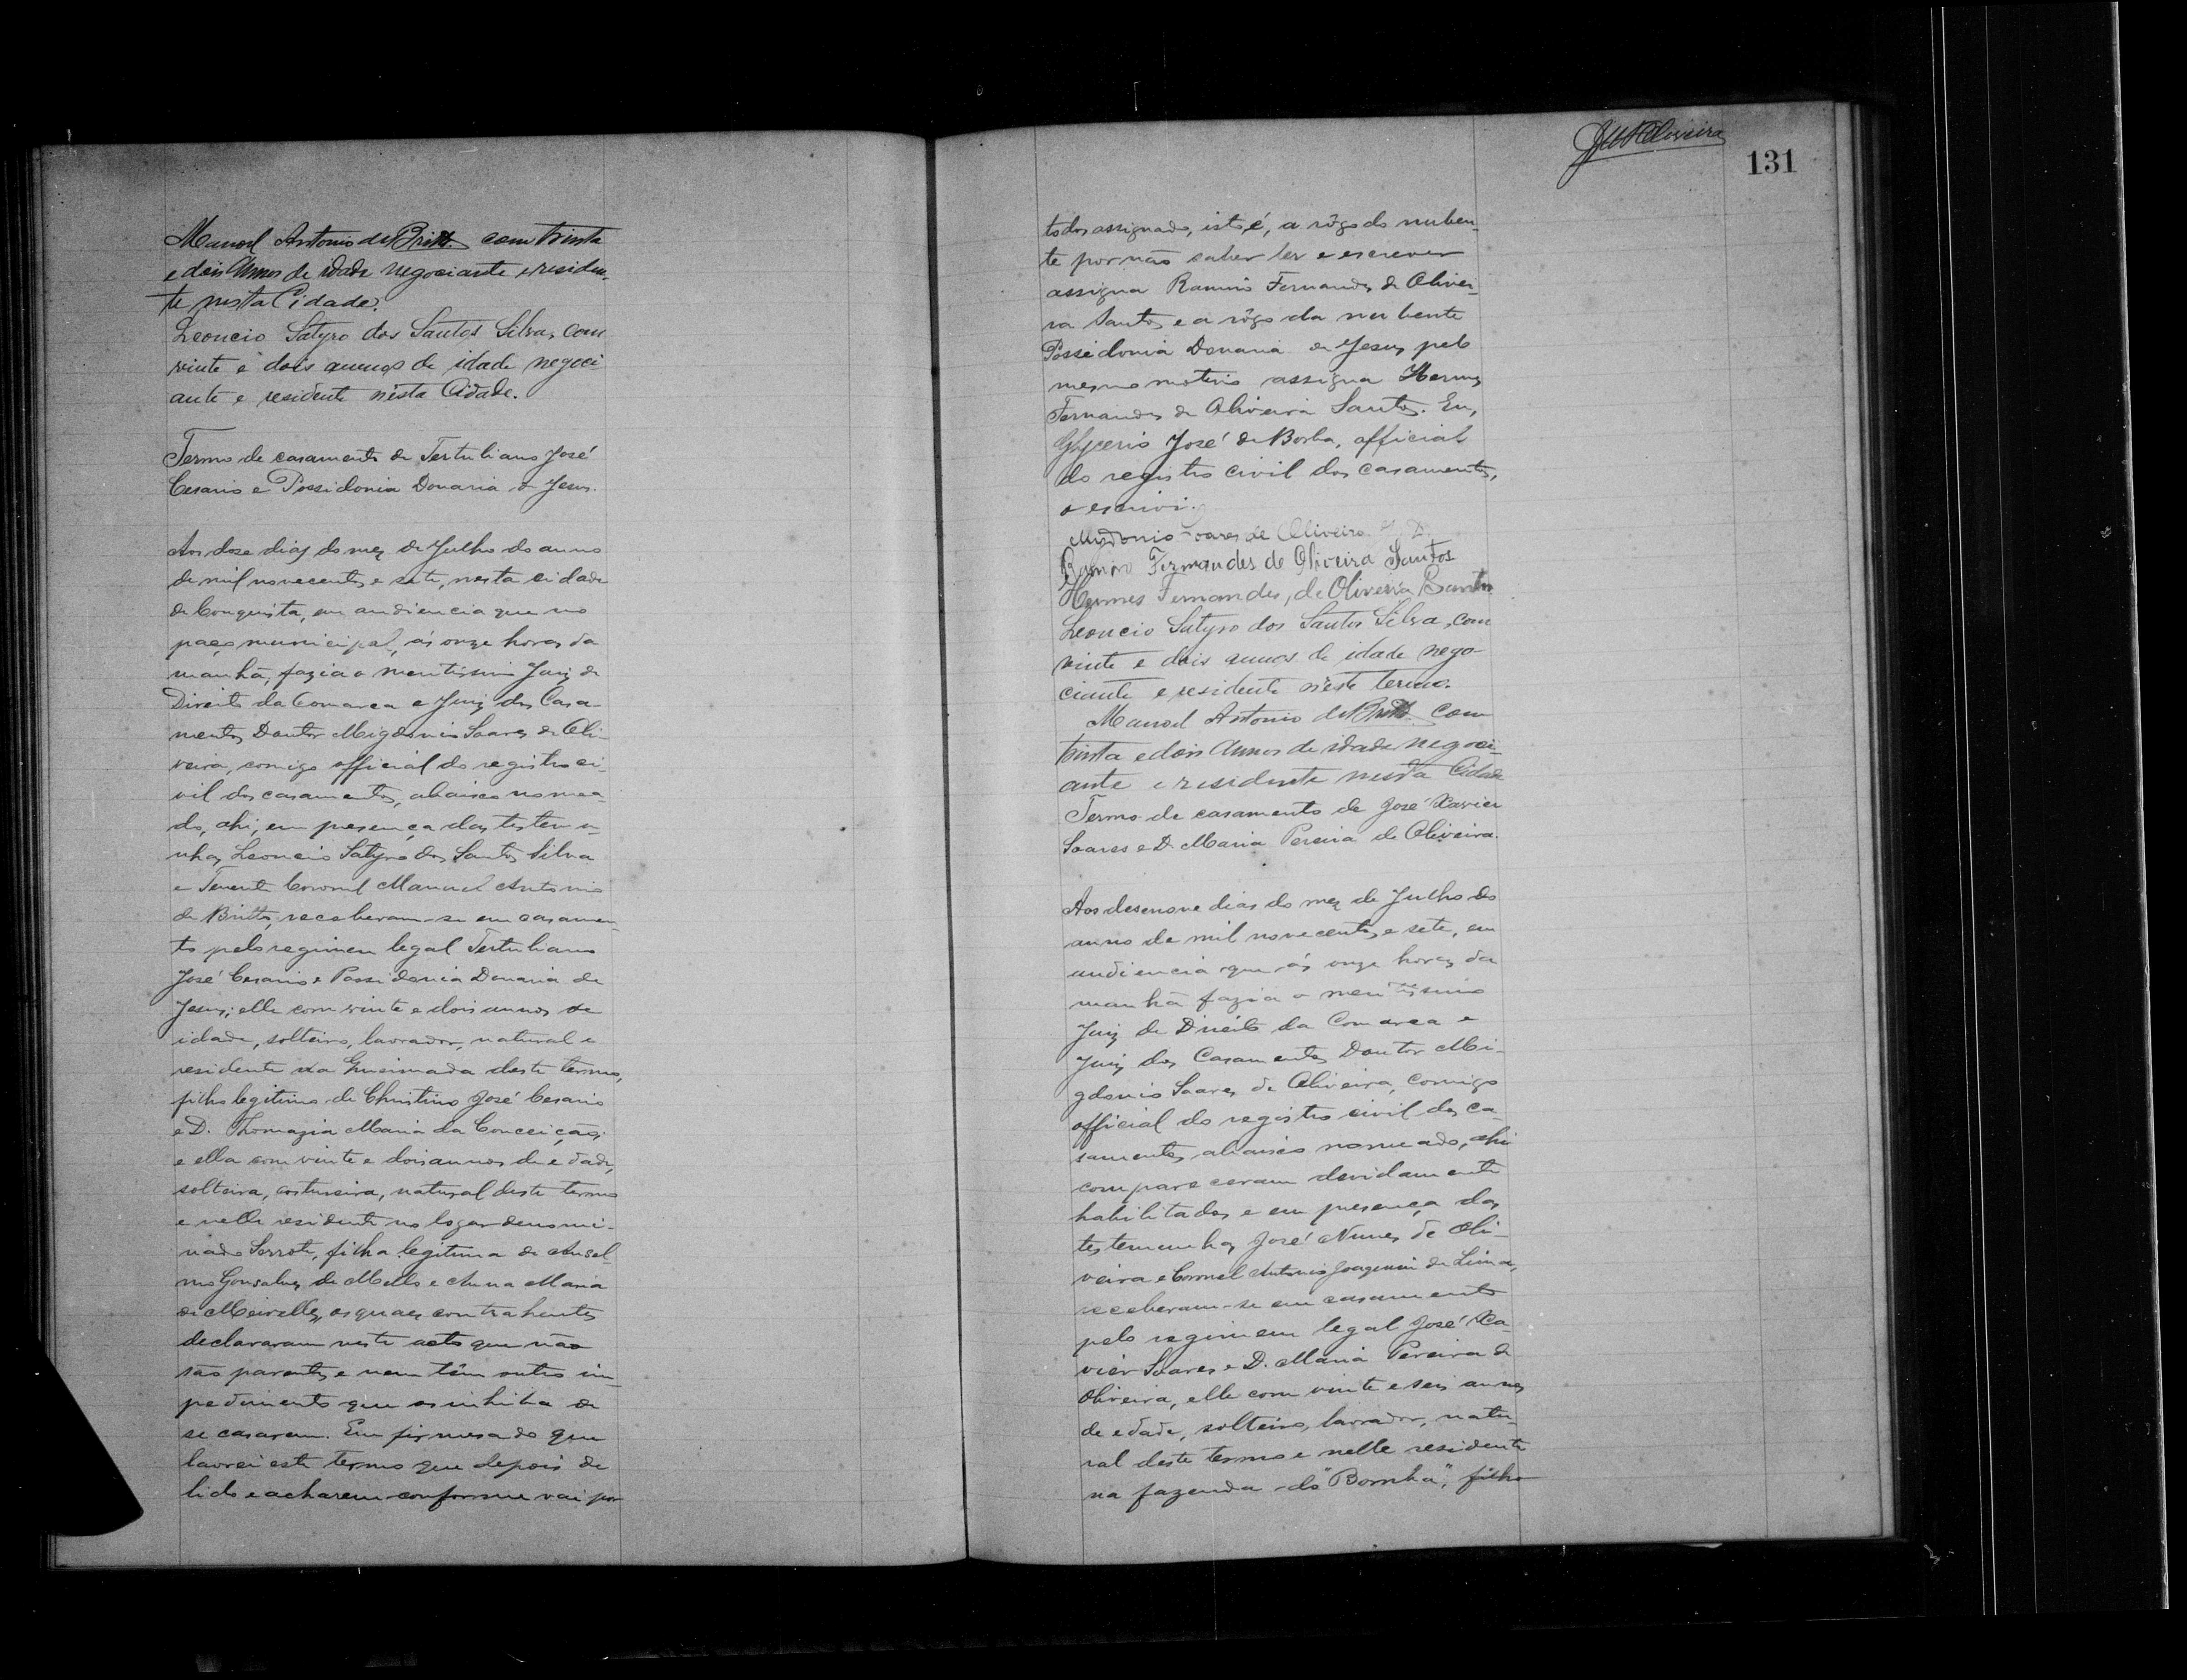 Manoel Antonio de Britto. com trinta
e dois annos de idade negociante e residen-
te nesta Cidade.
Leoncio Satyro dos Santos Silva, com
vinte e dois annos de idade negoci-
ante e residente n'esta Cidade.
Termo de casamento de Tertuliano José
Cesario e Possidonia Donaria de Jesus.
Aos dose dias do mez de Julho do anno
de mil novecentos e sete, nesta cidade
de Conquista, em audiencia que no
paço municipal, ás onze horas da
manhã, fazia o meritissimo Juiz de
Direito da Comarca e Juiz dos Casa-
mentos Doutor Migdonio Soares de Oli-
veira, comigo official do registro ci-
vil dos casamentos, abaixo nomea-
do, ahi, em presença das testemu-
nhas Leoncio Satyro dos Santos Silva
e Tenente Coronel Manuel Antonio
de Britto, receberam-se em casamen-
to pelo regimen legal Tertuliano
José Cesario e Possidonia Donaria de
Jesus; elle com vinte e dois annos de
idade, solteiro, lavrador, natural e
residente na Queimada deste termo,
filho legitimo de Christino José Cesario
e D. Thomazia Maria da Conceição;
e ella com vinte e dois annos de edade,
solteira, costureira, natural deste termo
e nelle residente no logar denomi-
nado Serrote, filha legitima de Ansel-
mo Gonsalves de Mello e Anna Maria
de Meirelles, os quaes contrahentes
declararam neste acto que não
são parentes e nem têm outro im-
pedimento que os inhiba de
se casarem. Em firmesa do que
lavrei este termo que depois de
lido e acharem conforme vai por
JMSOliveira
131
todos assignado, isto é, a rôgo do nuben-
te por não saber ler e escrever
assigna Ramiro Fernandes de Olivei-
ra Santos e a rôgo da nubente
Possidonia Donaria de Jesus, pelo
mesmo motivo assigna Hermes
Fernandes de Oliveira Santos. Eu,
Glycerio José de Borba, official
do registro civil dos casamentos,
o escrevi.
Migdonio Soares de Oliveira J. D.
Ramiro Fernandes de Oliveira Santos
Hermes Fernandes, de Oliveira Santos
Leoncio Satyro dos Santos Silva, com
vinte e dois annos de idade nego-
ciante e residente n'este termo.
Manoel Antonio de Britto. com
trinta e dois annos de idade negoci-
ante e residente nesta Cidade
Termo de casamento de José Xavier
Soares e D. Maria Pereira de Oliveira.
Aos desenove dias do mez de Julho do
anno de mil novecentos e sete, em
audiencia que ás onze horas da
manhã fazia o meritissimo
Juiz de Direito da Comarca e
Juiz dos Casamentos Doutor Mi-
gdonio Soares de Oliveira, comigo
official do registro civil dos ca-
samentos, abaixo nomeado, ahi
compareceram devidamente
habilitados e em presença das
testemunhas José Nunes de Oli-
veira e Coronel Antonio Joaquim de Lima,
receberam-se em casamento
pelo regimem legal José Xa-
vier Soares e D. Maria Pereira de
Oliveira, elle com vinte e seis annos
de edade, solteiro, lavrador, natu-
ral deste termo e nelle residente
na fazenda do "Bomba", filho